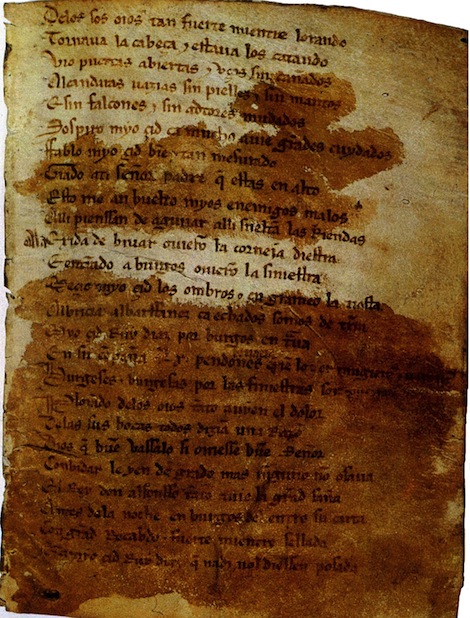 Delos sos oios tan fuerte mientre lorando
Tornava la cabeça ⁊ estava los catando
Vio puertas abiertas ⁊ vços sin cañados
Alcandaras uazias sin pielles ⁊ sin mantos
E sin falcones ⁊ sin adtores mudados
Sospiro myo çid ca mucho auie grãdes cuydados
Ffablo myo çid bie͂ ⁊ tan mesurado
Grado ati señor padre q̃ estas en alto
Esto me an buelto myos enemigos malos
Alli pienssan de aguiiar alli sueltã las Riendas
Ala Exida de biuar ouierõ la corneia diestra
E entrãdo a burgos ouierõ la siniestra
Meçio myo çid los ombros ⁊ en grameo la tiesta
Albricia albarffanez ca echados somos de t̃ra
Myo çid Ruy diaz por burgos en traua
En su cõpaña .Lx. pendones
Burgeses ⁊ burgesas por las finiestras
Plorando delos oios tãto auyen el dolor
Delas sus bocas todos dizia una Razo
Dios q̃ bue͂ vassalo si ouiesse bue͂ Señor
Conbidar le yen de grado mas ninguno no osaua
El Rey don alfonsso tãto auie la grãd saña
Antes dela noche en burgos del entro su carta
Con grãd Recabdo ⁊ fuerte mientre sellada
Que a myo çid Ruy diaz q̃ nadi nol diessen posada